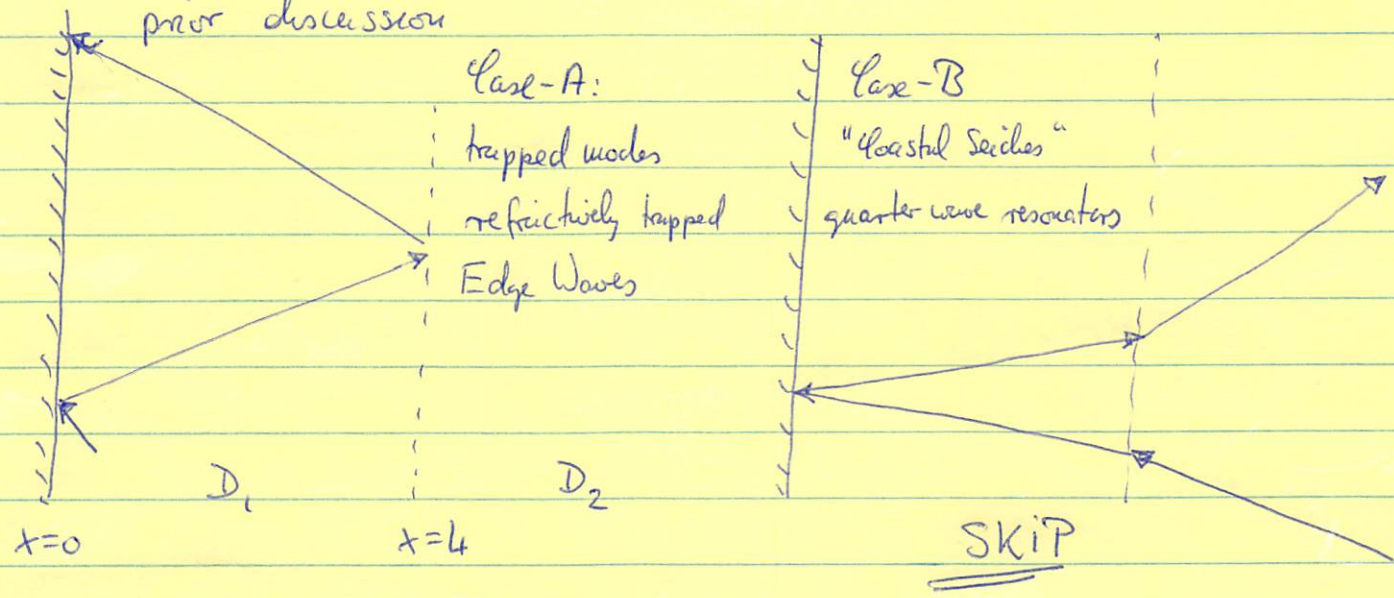 prior discussion
Case-A:
trapped modes
refractively trapped
Edge Waves
Case-B
"Coastal Seiches"
quarter wave resonators
D₁
D₂
x=0
x=L
SKiP